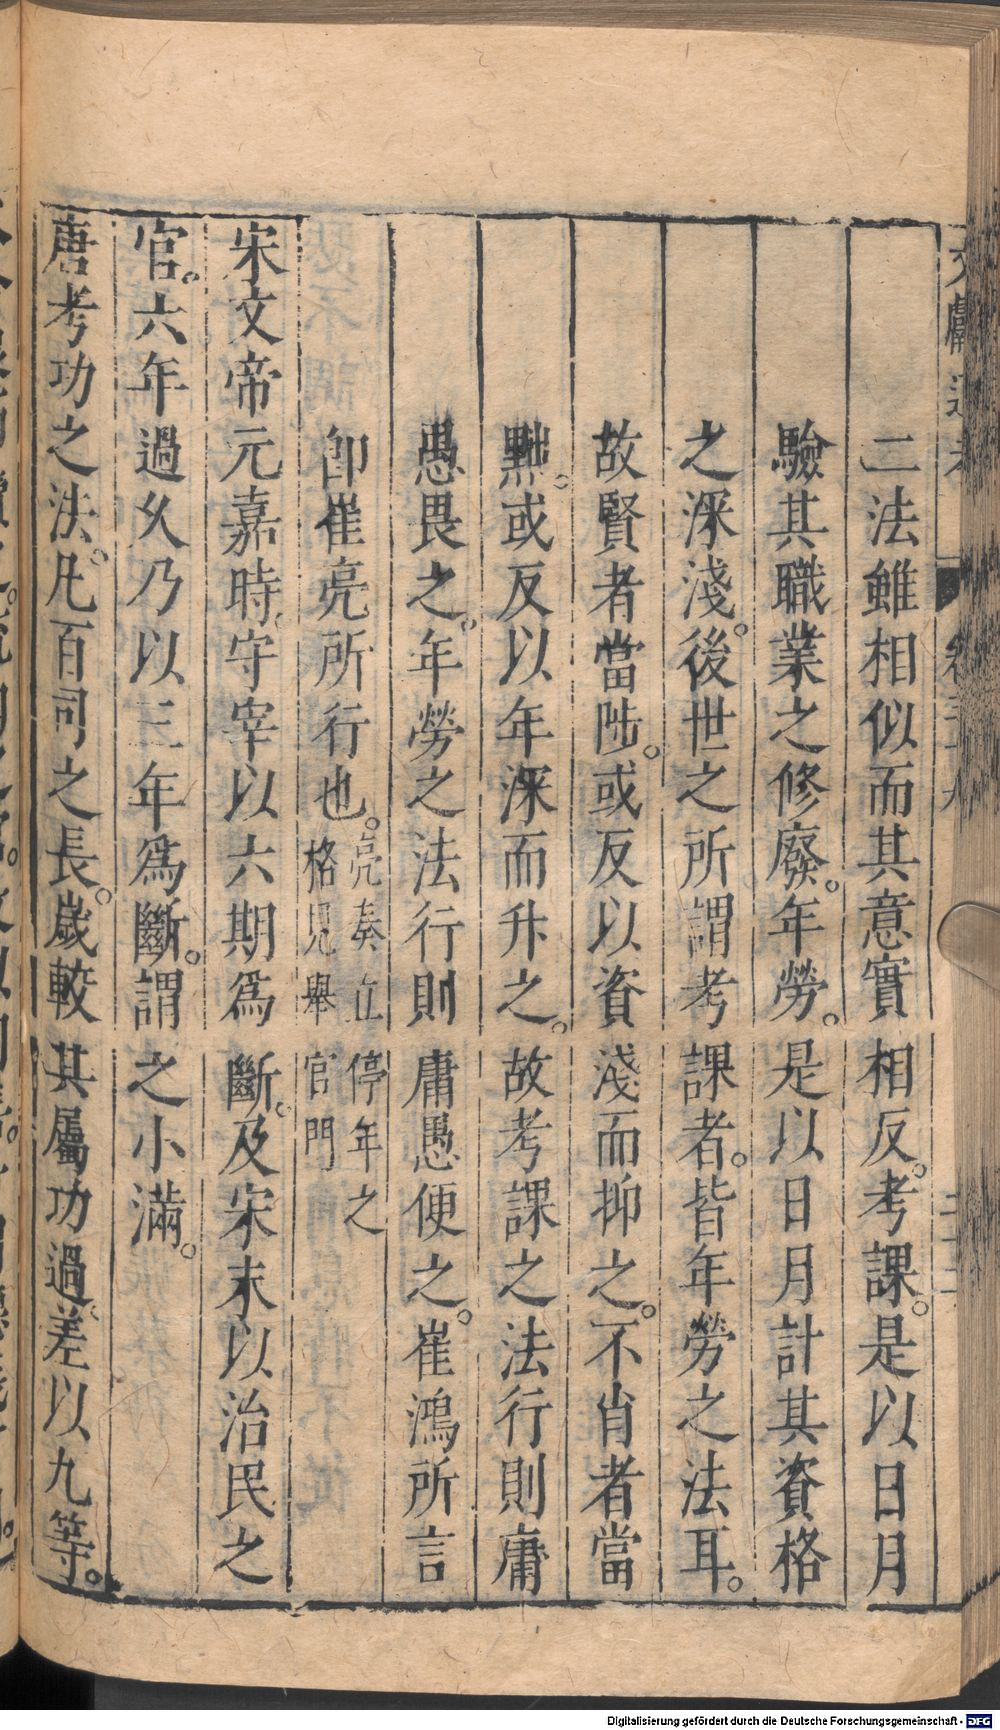 二法雖相似而其意實相反。考課。是以日月
驗其職業之修廢。年勞。是以日月計其資格
之深淺。後世之所謂考課者。皆年勞之法耳。
故賢者當陟。或反以資淺而抑之。不肖者當
黜。或反以年深而升之。故考課之法行則庸
愚畏之。年勞之法行則庸愚便之。崔鴻所言
卽崔亮所行也。亮奏立停年之格見舉官門
宋文帝元嘉時。守宰以六期爲斷。及宋末以治民之
官。六年過久乃以三年爲斷。謂之小滿。
唐考功之法。凡百司之長。歲較其屬功過。差以九等。
Digitalisierung gefördert durch die Deutsche Forschungsgemeinschaft - DFG